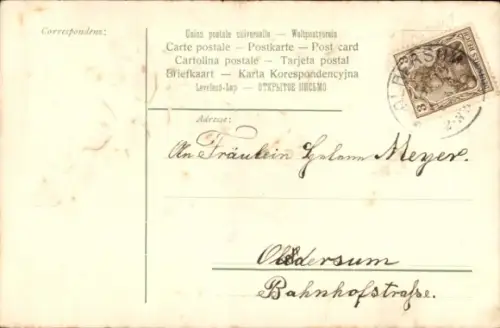 Correspondenz:
Union postale universelle — Weltpostverein
Carte postale — Postkarte — Post card
Cartolina postale — Tarjeta postal
Briefkaart — Karta Korespondencyjna
Levelező-Lap — ОТКРЫТОЕ ПИСЬМО
Adresse:
An Fräulein Meyer.
Oldersum
Bahnhofstraße.